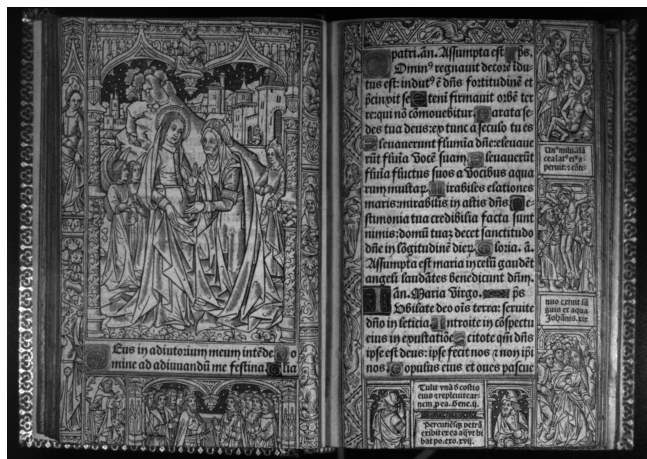 Eus in adiutorium meum intēde. o
mine ad adiuuandū me festina. Glia
patri. an. Assumpta est ps.
Ominꝰ regnauit decorē īdu
tus est: indutꝰ ē dn̄s fortitudinē et
p̄cinxit se. Eteni firmauit orbē ter
re: qui nō cōmouebitur. Parata se-
des tua deus: ex tunc a seculo tu es
Eleuauerunt flumīa dn̄e: eleuaue
rūt flūia vocē suam. Eleuauerūt
flūia fluctus suos a vocibus aqua
rum multaꝝ. Mirabiles elationes
maris: mirabilis in altis dn̄s. Te-
stimonia tua credibilia facta sunt
nimis: domū tuaꝫ decet sanctitudo
dn̄e in lōgitudinē dieꝝ. Gloria. ā.
Assumpta est maria in celū gaudēt
angeli laudātes benedicunt dn̄m.
an. Maria virgo. ps
Vbilate deo oīs terra: seruite
dn̄o in leticia. Introite in cōspectu
eius in exultatiōe. Scitote qm̄ dn̄s
ipse est deus: ipse fecit nos ⁊ non ip̄i
nos. Populus eius et oues pascue
Unꝰ militū lā
cea latꝰ eiꝰ a-
peruit: ⁊ cōti-
nuo exiuit sā
guis et aqua
Johānis. xix
Tulit vnā d̄ costis
eius ⁊ repleuit car-
nem p̄ ea. Gene. ij.
Percutiesqꝫ petrā
exibit ex ea aq̄ vt bi
bat po. exo. xvij.